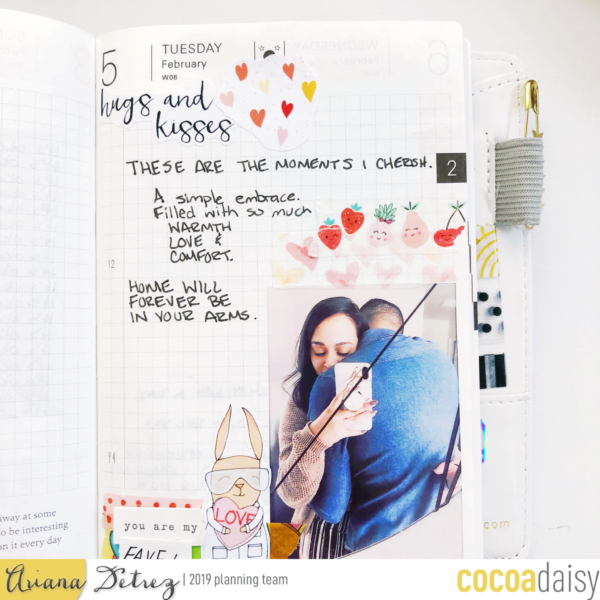 5
TUESDAY
February
W06
6
hugs and
kisses
THESE ARE THE MOMENTS I CHERISH.
2
A simple embrace.
Filled with so much
WARMTH
LOVE &
COMFORT.
12
HOME WILL
FOREVER BE
IN YOUR ARMS.
14
LOVE
you are my
FAVE!
away at some
to be interesting
on it every day
.com
Ariana Detrez | 2019 planning team
cocoadaisy